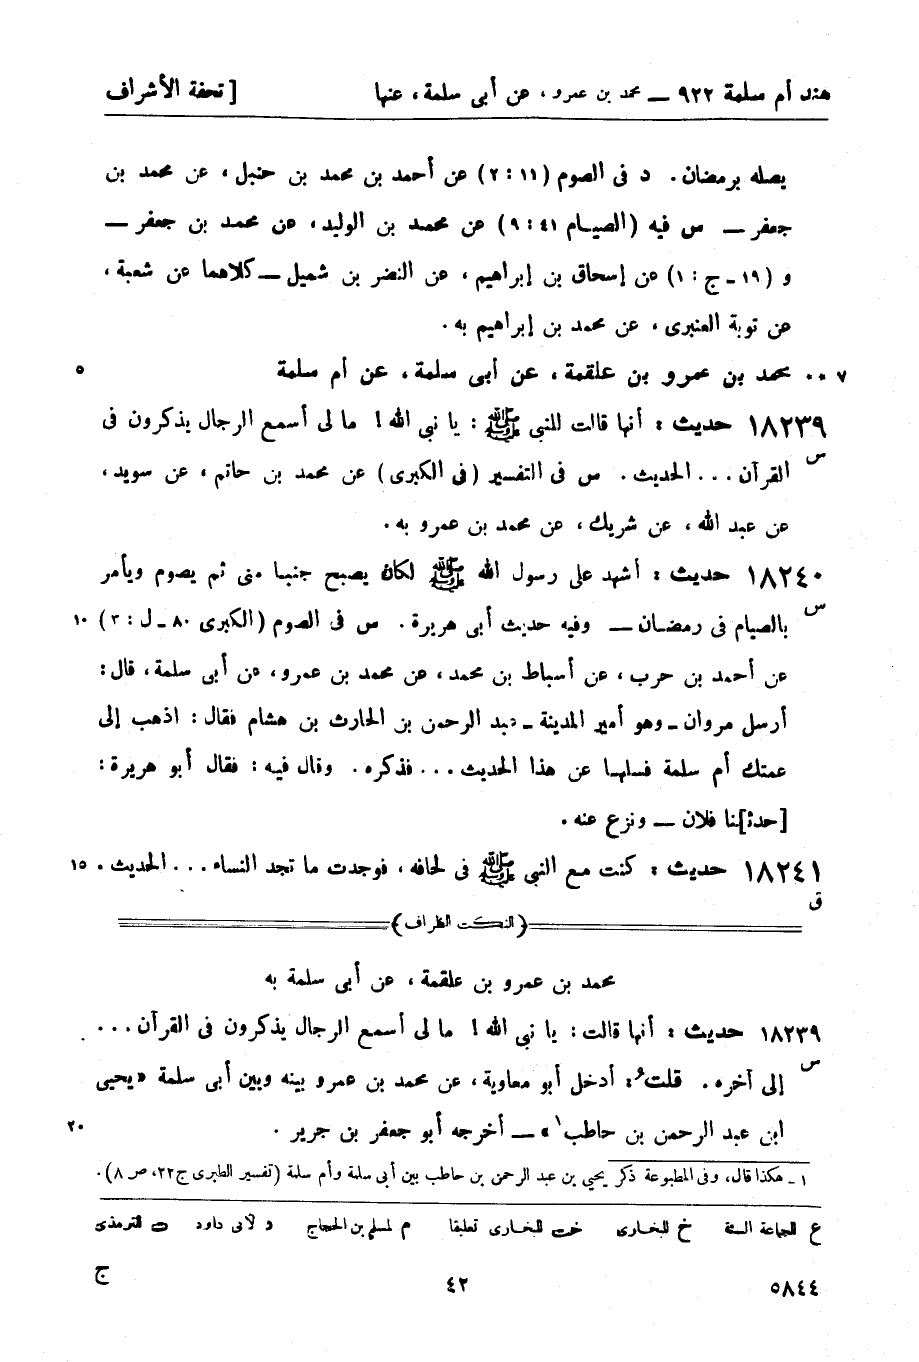 هند أم سلمة ٩٢٢ — محمد بن عمرو، عن أبى سلمة، عنها [تحفة الأشراف
يصله برمضان. د فى الصوم (١١: ٢) عن أحمد بن محمد بن حنبل، عن محمد بن
جعفر — س فيه (الصيام ٤١: ٩) عن محمد بن الوليد، عن محمد بن جعفر —
و (١٩ - ج: ١) عن إسحاق بن إبراهيم، عن النضر بن شميل — كلاهما عن شعبة،
عن توبة العنبرى، عن محمد بن إبراهيم به.
٧ ٠٠ محمد بن عمرو بن علقمة، عن أبى سلمة، عن أم سلمة ٥
١٨٢٣٩ حديث: أنها قالت للنبى ﷺ: يا نبى الله! ما لى أسمع الرجال يذكرون فى
س القرآن ... الحديث. س فى التفسير (فى الكبرى) عن محمد بن حاتم، عن سويد،
عن عبد الله، عن شريك، عن محمد بن عمرو به.
١٨٢٤٠ حديث: أشهد على رسول الله ﷺ لكان يصبح جنبا منى ثم يصوم ويأمر
س بالصيام فى رمضان — وفيه حديث أبى هريرة. س فى الصوم (الكبرى ٨٠ - ل: ٣) ١٠
عن أحمد بن حرب، عن أسباط بن محمد، عن محمد بن عمرو، عن أبى سلمة، قال:
أرسل مروان - وهو أمير المدينة - عبد الرحمن بن الحارث بن هشام فقال: اذهب إلى
عمتك أم سلمة فسلها عن هذا الحديث ... فذكره. وقال فيه: فقال أبو هريرة:
[حدثـ]نا فلان — ونزع عنه.
١٨٢٤١ حديث: كنت مع النبى ﷺ فى لحافه، فوجدت ما تجد النساء ... الحديث. ١٥
ق
(النكت الظراف)
محمد بن عمرو بن علقمة، عن أبى سلمة به
١٨٢٣٩ حديث: أنها قالت: يا نبى الله! ما لى أسمع الرجال يذكرون فى القرآن ...
س إلى آخره. قلت: أدخل أبو معاوية، عن محمد بن عمرو بينه وبين أبى سلمة «يحيى
ابن عبد الرحمن بن حاطب١» — أخرجه أبو جعفر بن جرير. ٢٠
١ - هكذا قال، وفى المطبوعة ذكر يحيى بن عبد الرحمن بن حاطب بين أبى سلمة وأم سلمة (تفسير الطبرى ج٢٢، ص ٨).
ع للجماعة الستة خ للبخارى خت للبخارى تعليقا م لمسلم بن الحجاج د لأبى داود ت للترمذى
٥٨٤٤ ٤٢ ج